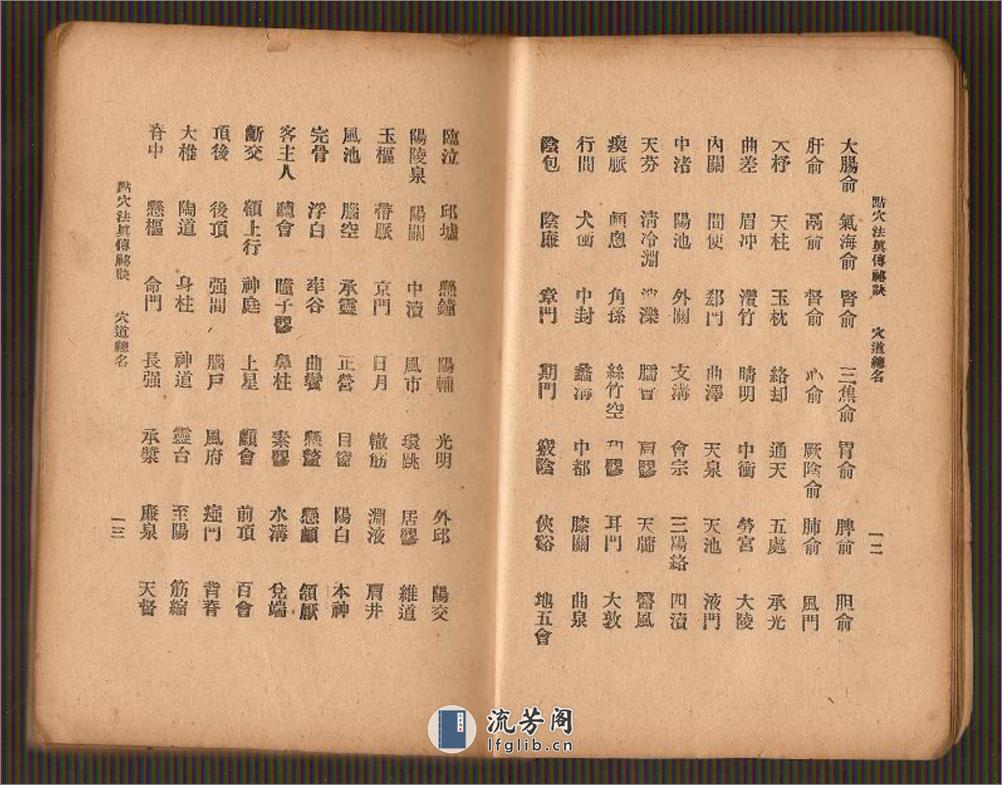 點穴法眞傳祕訣　穴道總名　一二
大腸俞　氣海俞　腎俞　三焦俞　胃俞　脾俞　胆俞
肝俞　鬲俞　督俞　心俞　厥陰俞　肺俞　風門
大杼　天柱　玉枕　絡却　通天　五處　承光
曲差　眉冲　攢竹　晴明　中衝　勞宮　大陵
內關　間使　郄門　曲澤　天泉　天池　液門
中渚　陽池　外關　支溝　會宗　三陽絡　四瀆
天井　淸冷淵　消濼　臑會　肩髎　天牖　翳風
瘈脈　顱息　角孫　絲竹空　和髎　耳門　大敦
行間　太衝　中封　蠡溝　中都　膝關　曲泉
陰包　陰廉　章門　期門　竅陰　俠谿　地五會
臨泣　邱墟　懸鐘　陽輔　光明　外邱　陽交
陽陵泉　陽關　中瀆　風市　環跳　居髎　維道
玉樞　帶脈　京門　日月　輒筋　淵液　肩井
風池　腦空　承靈　正營　目窗　陽白　本神
完骨　浮白　率谷　曲鬢　懸釐　懸顱　頷厭
客主人　聽會　瞳子髎　鼻柱　素髎　水溝　兌端
齗交　額上行　神庭　上星　顖會　前頂　百會
頂後　後頂　强間　腦戶　風府　瘂門　背脊
大椎　陶道　身柱　神道　靈台　至陽　筋縮
脊中　懸樞　命門　長强　承漿　廉泉　天督
點穴法眞傳祕訣　穴道總名　一三
流芳阁
lfglib.cn